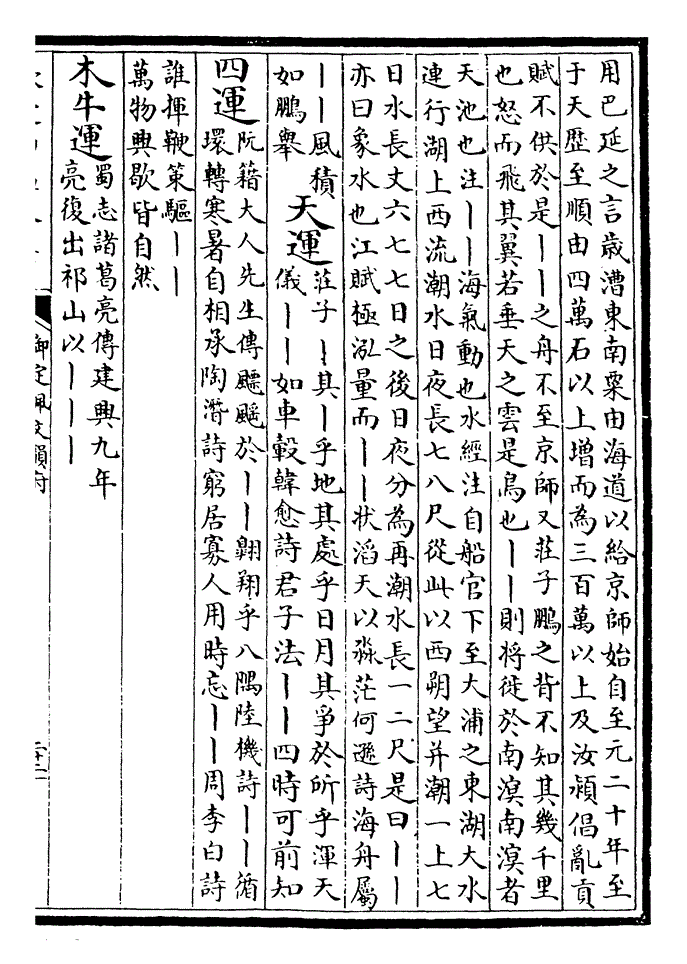 用巴延之言歳漕東南粟由海道以給京師始自至元二十年至
于天歴至順由四萬石以上増而為三百萬以上及汝潁倡亂貢
賦不供於是丨丨之舟不至京師又莊子鵬之背不知其幾千里
也怒而飛其翼若垂天之雲是鳥也丨丨則將徙於南溟南溟者
天池也注丨丨海氣動也水經注自船官下至大浦之東湖大水
連行湖上西流潮水日夜長七八尺從此以西朔望并潮一上七
日水長丈六七七日之後日夜分為再潮水長一二尺是曰丨丨
亦曰象水也江賦極泓量而丨丨狀滔天以淼茫何遜詩海舟屬
丨丨風積
如鵬舉
天運
莊子丨其丨乎地其處乎日月其爭於所乎渾天
儀丨丨如車轂韓愈詩君子法丨丨四時可前知
四運
阮籍大人先生傳飃颻於丨丨翺翔乎八隅陸機詩丨丨循
環轉寒暑自相承陶潛詩窮居寡人用時忘丨丨周李白詩
誰揮鞭策驅丨丨
萬物興歇皆自然
木牛運
蜀志諸葛亮傳建興九年
亮復出祁山以丨丨丨
御定佩文韻府